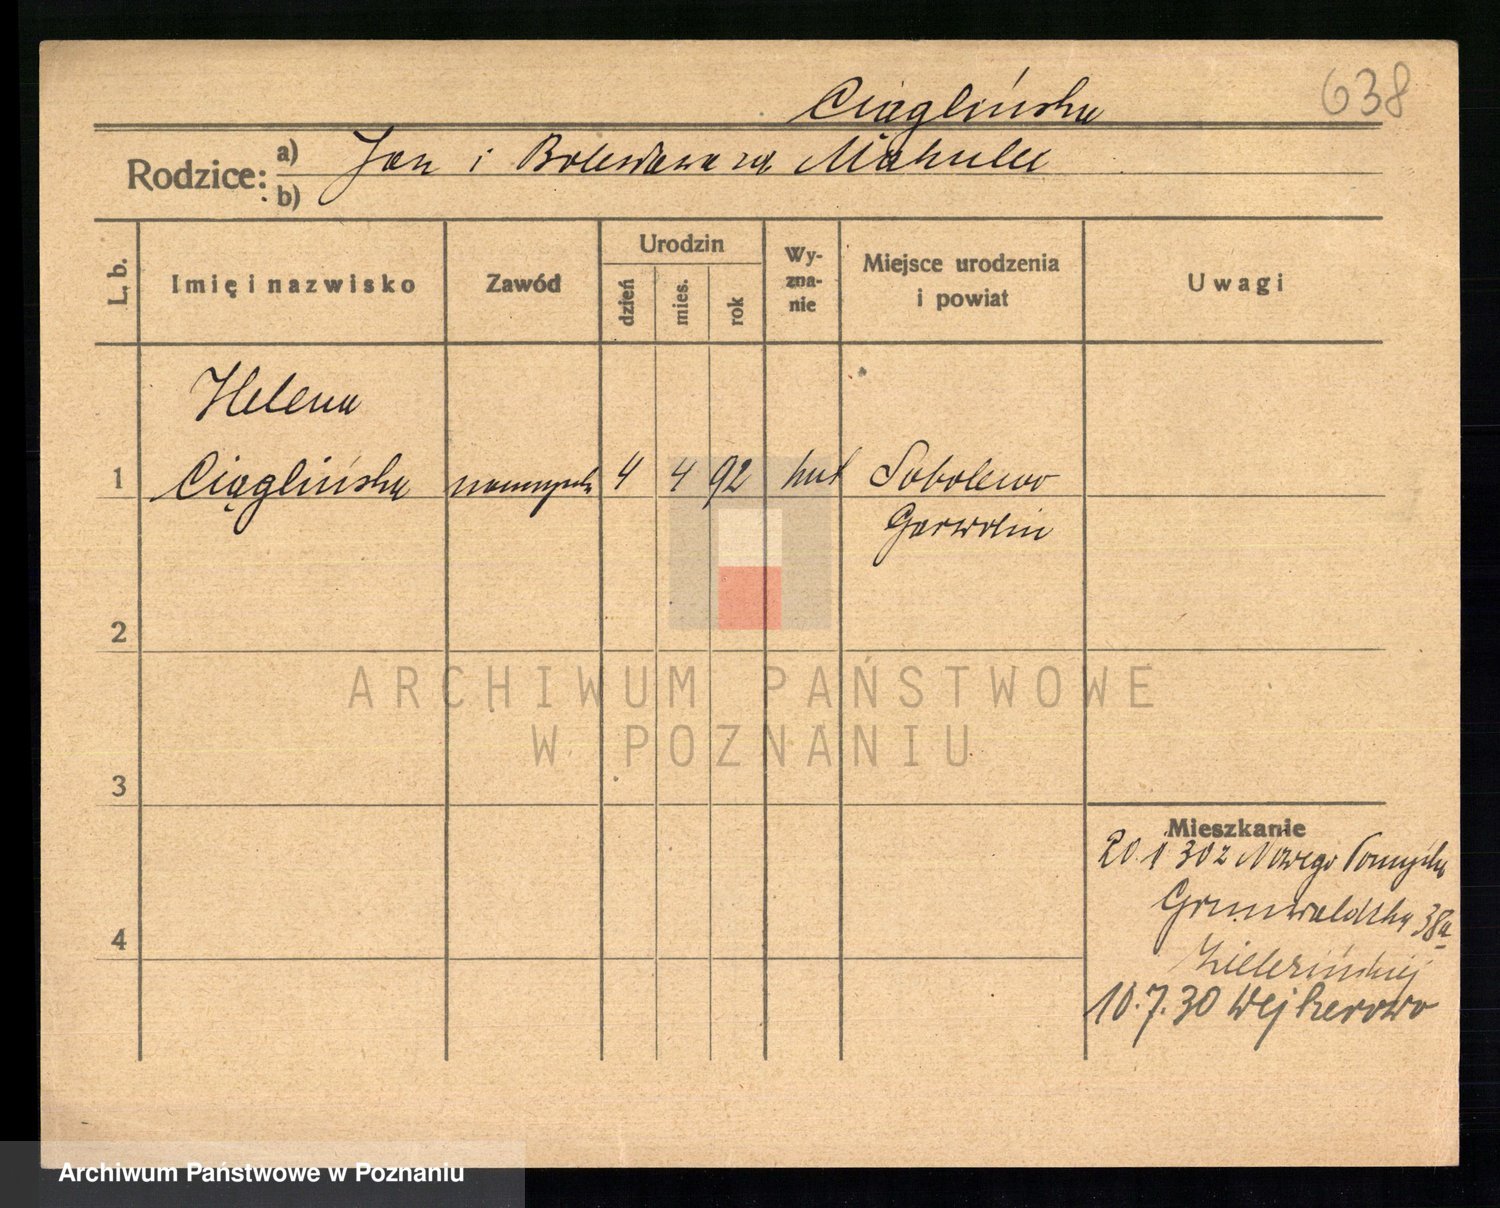 638
Ciąglińska
Rodzice: a) Jan i
b)
L. b.
Imię i nazwisko
Zawód
Urodzin
dzień
mies.
rok
Wy-
zna-
nie
Miejsce urodzenia
i powiat
Uwagi
Helena
1 Ciąglińska 4 4 92 Sobolewo
Garwolin
2
ARCHIWUM PAŃSTWOWE
W POZNANIU
3
Mieszkanie
20. 1 30 z Nowego Tomyśla
Grunwaldzka 38a
4
10.7.30 Wejherowo
Archiwum Państwowe w Poznaniu